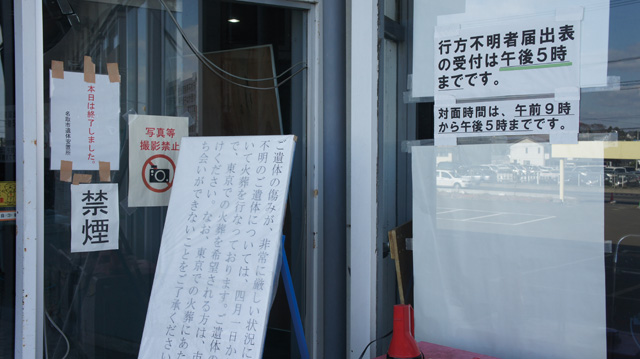 行方不明者届出表
の受付は午後5時
までです。
対面時間は、午前9時
から午後5時までです。
本日は終了しました。
名取市遺体安置所
写真等
撮影禁止
禁煙
ご遺体の傷みが、非常に厳しい状況に
不明のご遺体については、四月一日か
いて火葬を行なっております。ご遺体の
で、東京での火葬を希望される方は、市
けください。なお、東京での火葬にあた
ち会いができないことをご了承ください